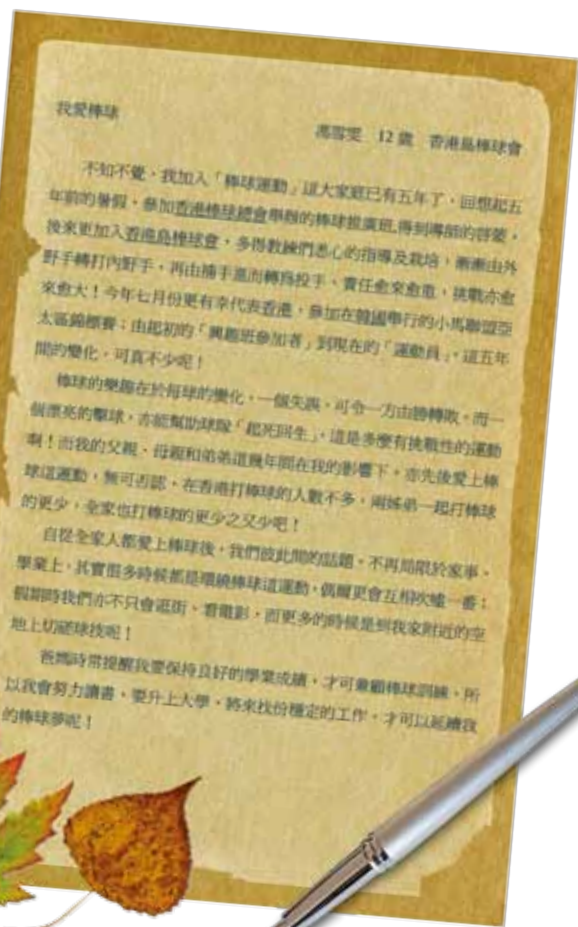 我愛棒球
馮雪雯　12 歲　香港島棒球會
不知不覺，我加入「棒球運動」這大家庭已有五年了，回想起五
年前的暑假，參加香港棒球總會舉辦的棒球推廣班,得到導師的啓蒙，
後來更加入香港島棒球會，多得教練們悉心的指導及栽培，漸漸由外
野手轉打內野手，再由捕手進而轉為投手，責任愈來愈重，挑戰亦愈
來愈大！今年七月份更有幸代表香港，參加在韓國舉行的小馬聯盟亞
太區錦標賽；由起初的「興趣班參加者」到現在的「運動員」，這五年
間的變化，可真不少呢！
棒球的樂趣在於每球的變化，一個失誤，可令一方由勝轉敗，而一
個漂亮的擊球，亦能幫助球隊「起死回生」，這是多麼有挑戰性的運動
啊！而我的父親、母親和弟弟這幾年間在我的影響下，亦先後愛上棒
球這運動，無可否認，在香港打棒球的人數不多，兩姊弟一起打棒球
的更少，全家也打棒球的更少之又少吧！
自從全家人都愛上棒球後，我們彼此間的話題，不再局限於家事、
學業上，其實很多時候都是環繞棒球這運動，偶爾更會互相吹噓一番；
假期時我們亦不只會逛街、看電影，而更多的時候是到我家附近的空
地上切磋球技呢！
爸媽時常提醒我要保持良好的學業成績，才可兼顧棒球訓練，所
以我會努力讀書，要升上大學，將來找份穩定的工作，才可以延續我
的棒球夢呢！